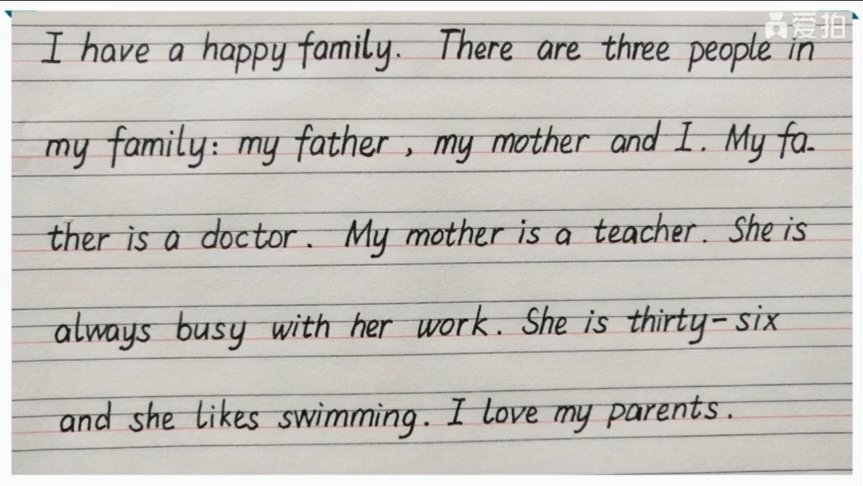 爱拍
I have a happy family. There are three people in
my family: my father, my mother and I. My fa-
ther is a doctor. My mother is a teacher. She is
always busy with her work. She is thirty-six
and she likes swimming. I love my parents.